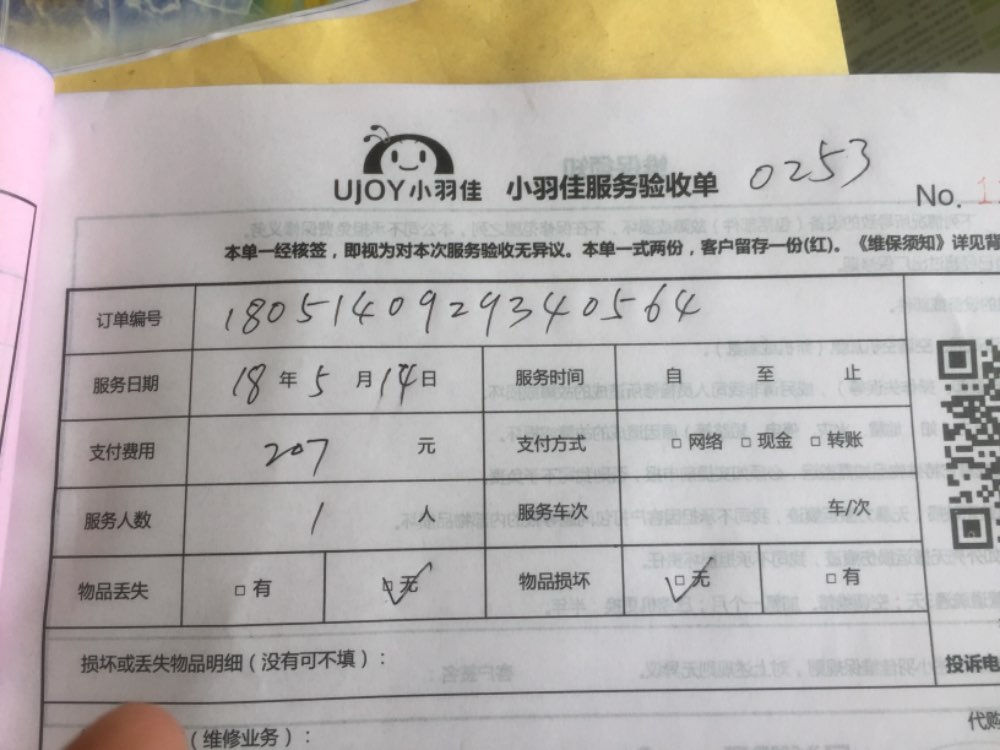 UJOY小羽佳 小羽佳服务验收单 0253
No. 1
本单一经核签，即视为对本次服务验收无异议。本单一式两份，客户留存一份(红)。《维保须知》详见背
订单编号 1805140929340564
服务日期 18年5月14日 服务时间 自 至 止
支付费用 207 元 支付方式 □网络 □现金 □转账
服务人数 1 人 服务车次 车/次
物品丢失 □有 □无 物品损坏 □无 □有
损坏或丢失物品明细（没有可不填）：
投诉电
代购
（维修业务）：